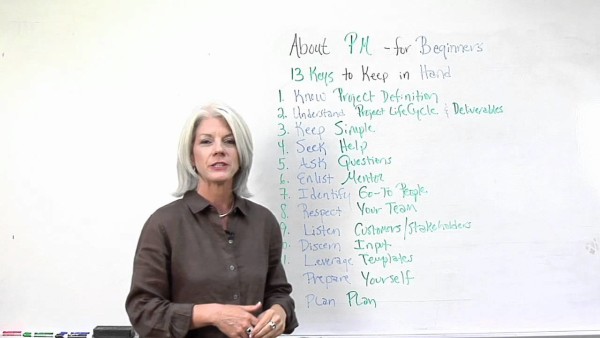 About PM - for Beginners
13 Keys to Keep in Hand
1. Know Project Definition
2. Understand Project LifeCycle & Deliverables
3. Keep Simple
4. Seek Help
5. Ask Questions
6. Enlist Mentor
7. Identify Go-To People
8. Respect Your Team
9. Listen Customers/Stakeholders
0. Discern Input
1. Leverage Templates
Prepare Yourself
Plan Plan